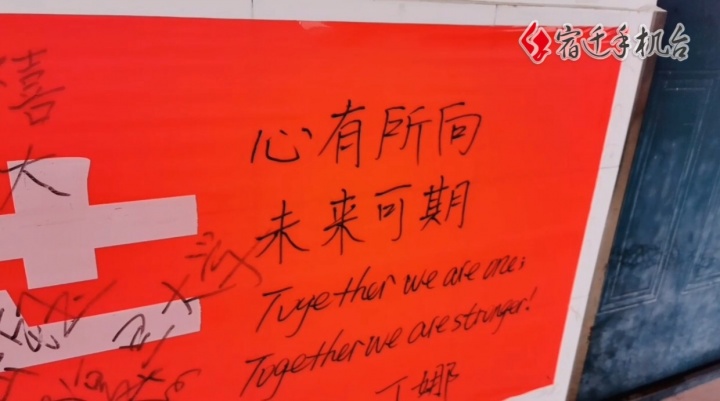 宿迁手机台
心有所向
未来可期
Together we are one;
Together we are stronger!
丁娜
大